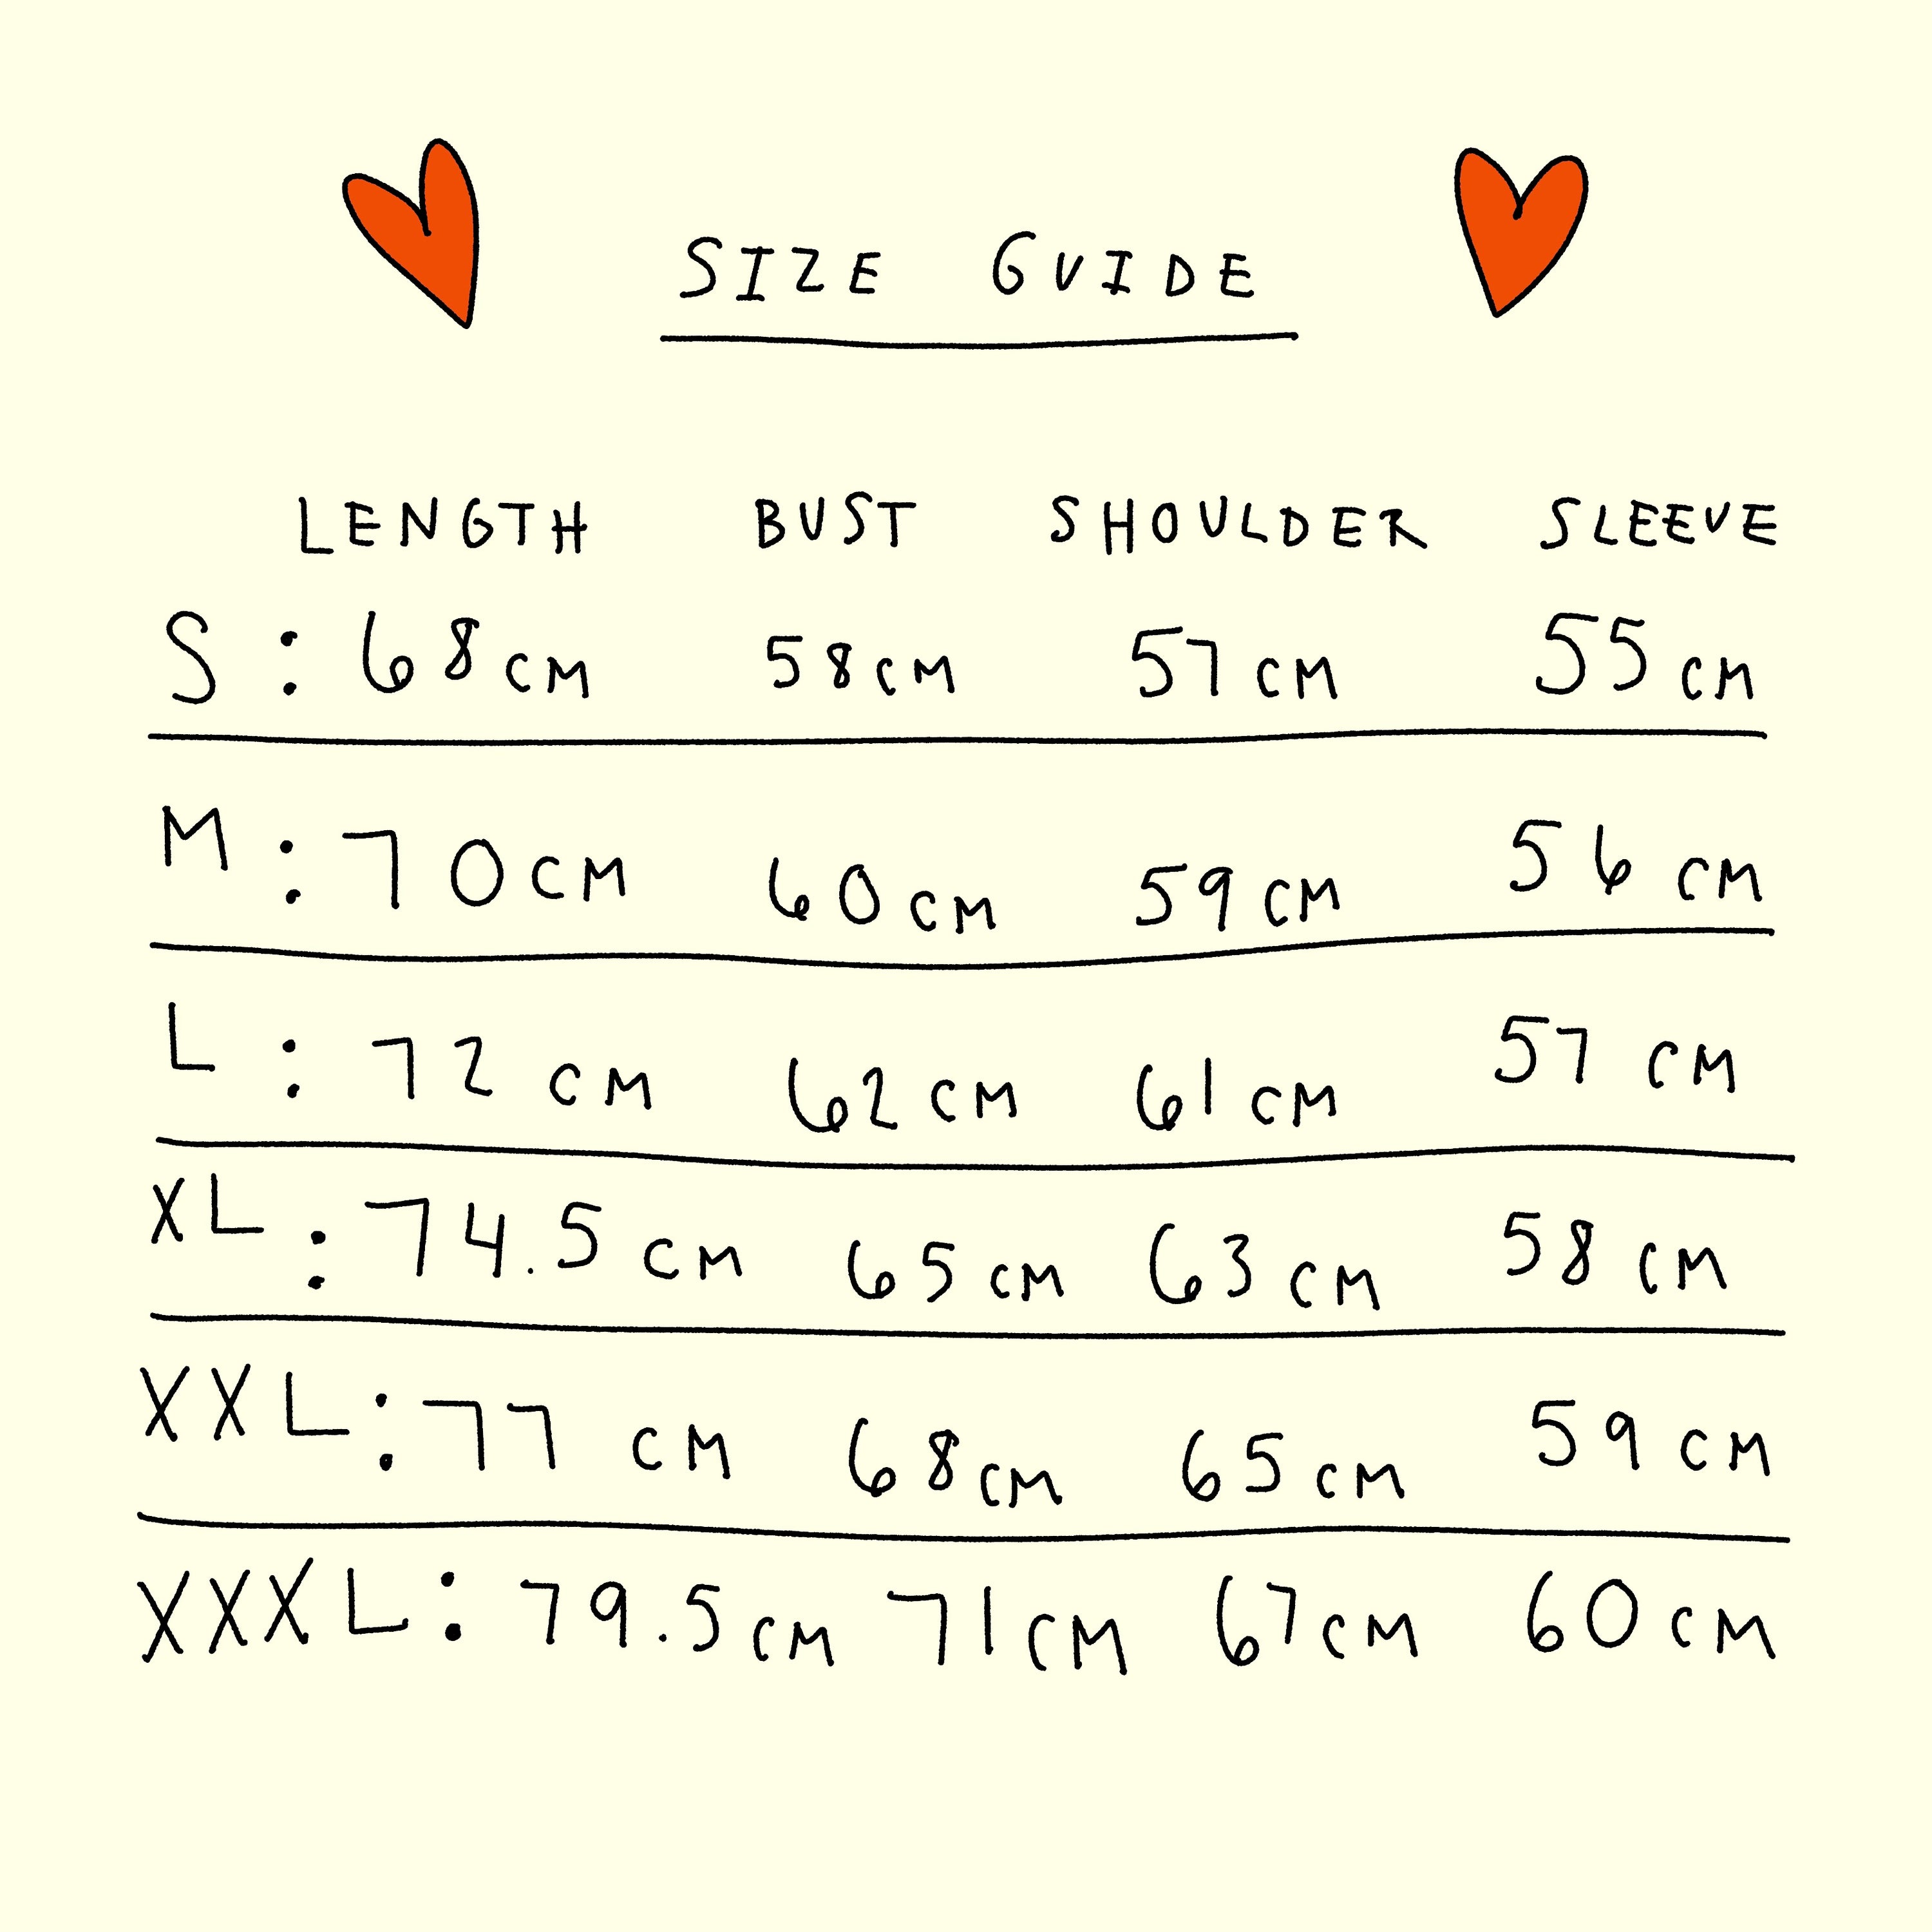 SIZE GUIDE
LENGTH BUST SHOULDER SLEEVE
S : 68 CM 58 CM 57 CM 55 CM
M : 70 CM 60 CM 59 CM 56 CM
L : 72 CM 62 CM 61 CM 57 CM
XL : 74.5 CM 65 CM 63 CM 58 CM
XXL : 77 CM 68 CM 65 CM 59 CM
XXXL : 79.5 CM 71 CM 67 CM 60 CM